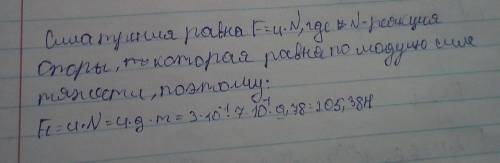 Сила трения равна F=u·N, где N-реакция
опоры, которая равна по модулю силе
тяжести, поэтому:
F=u·N=u·g·m=3·10⁻¹·7·10¹·9,78=205,38Н